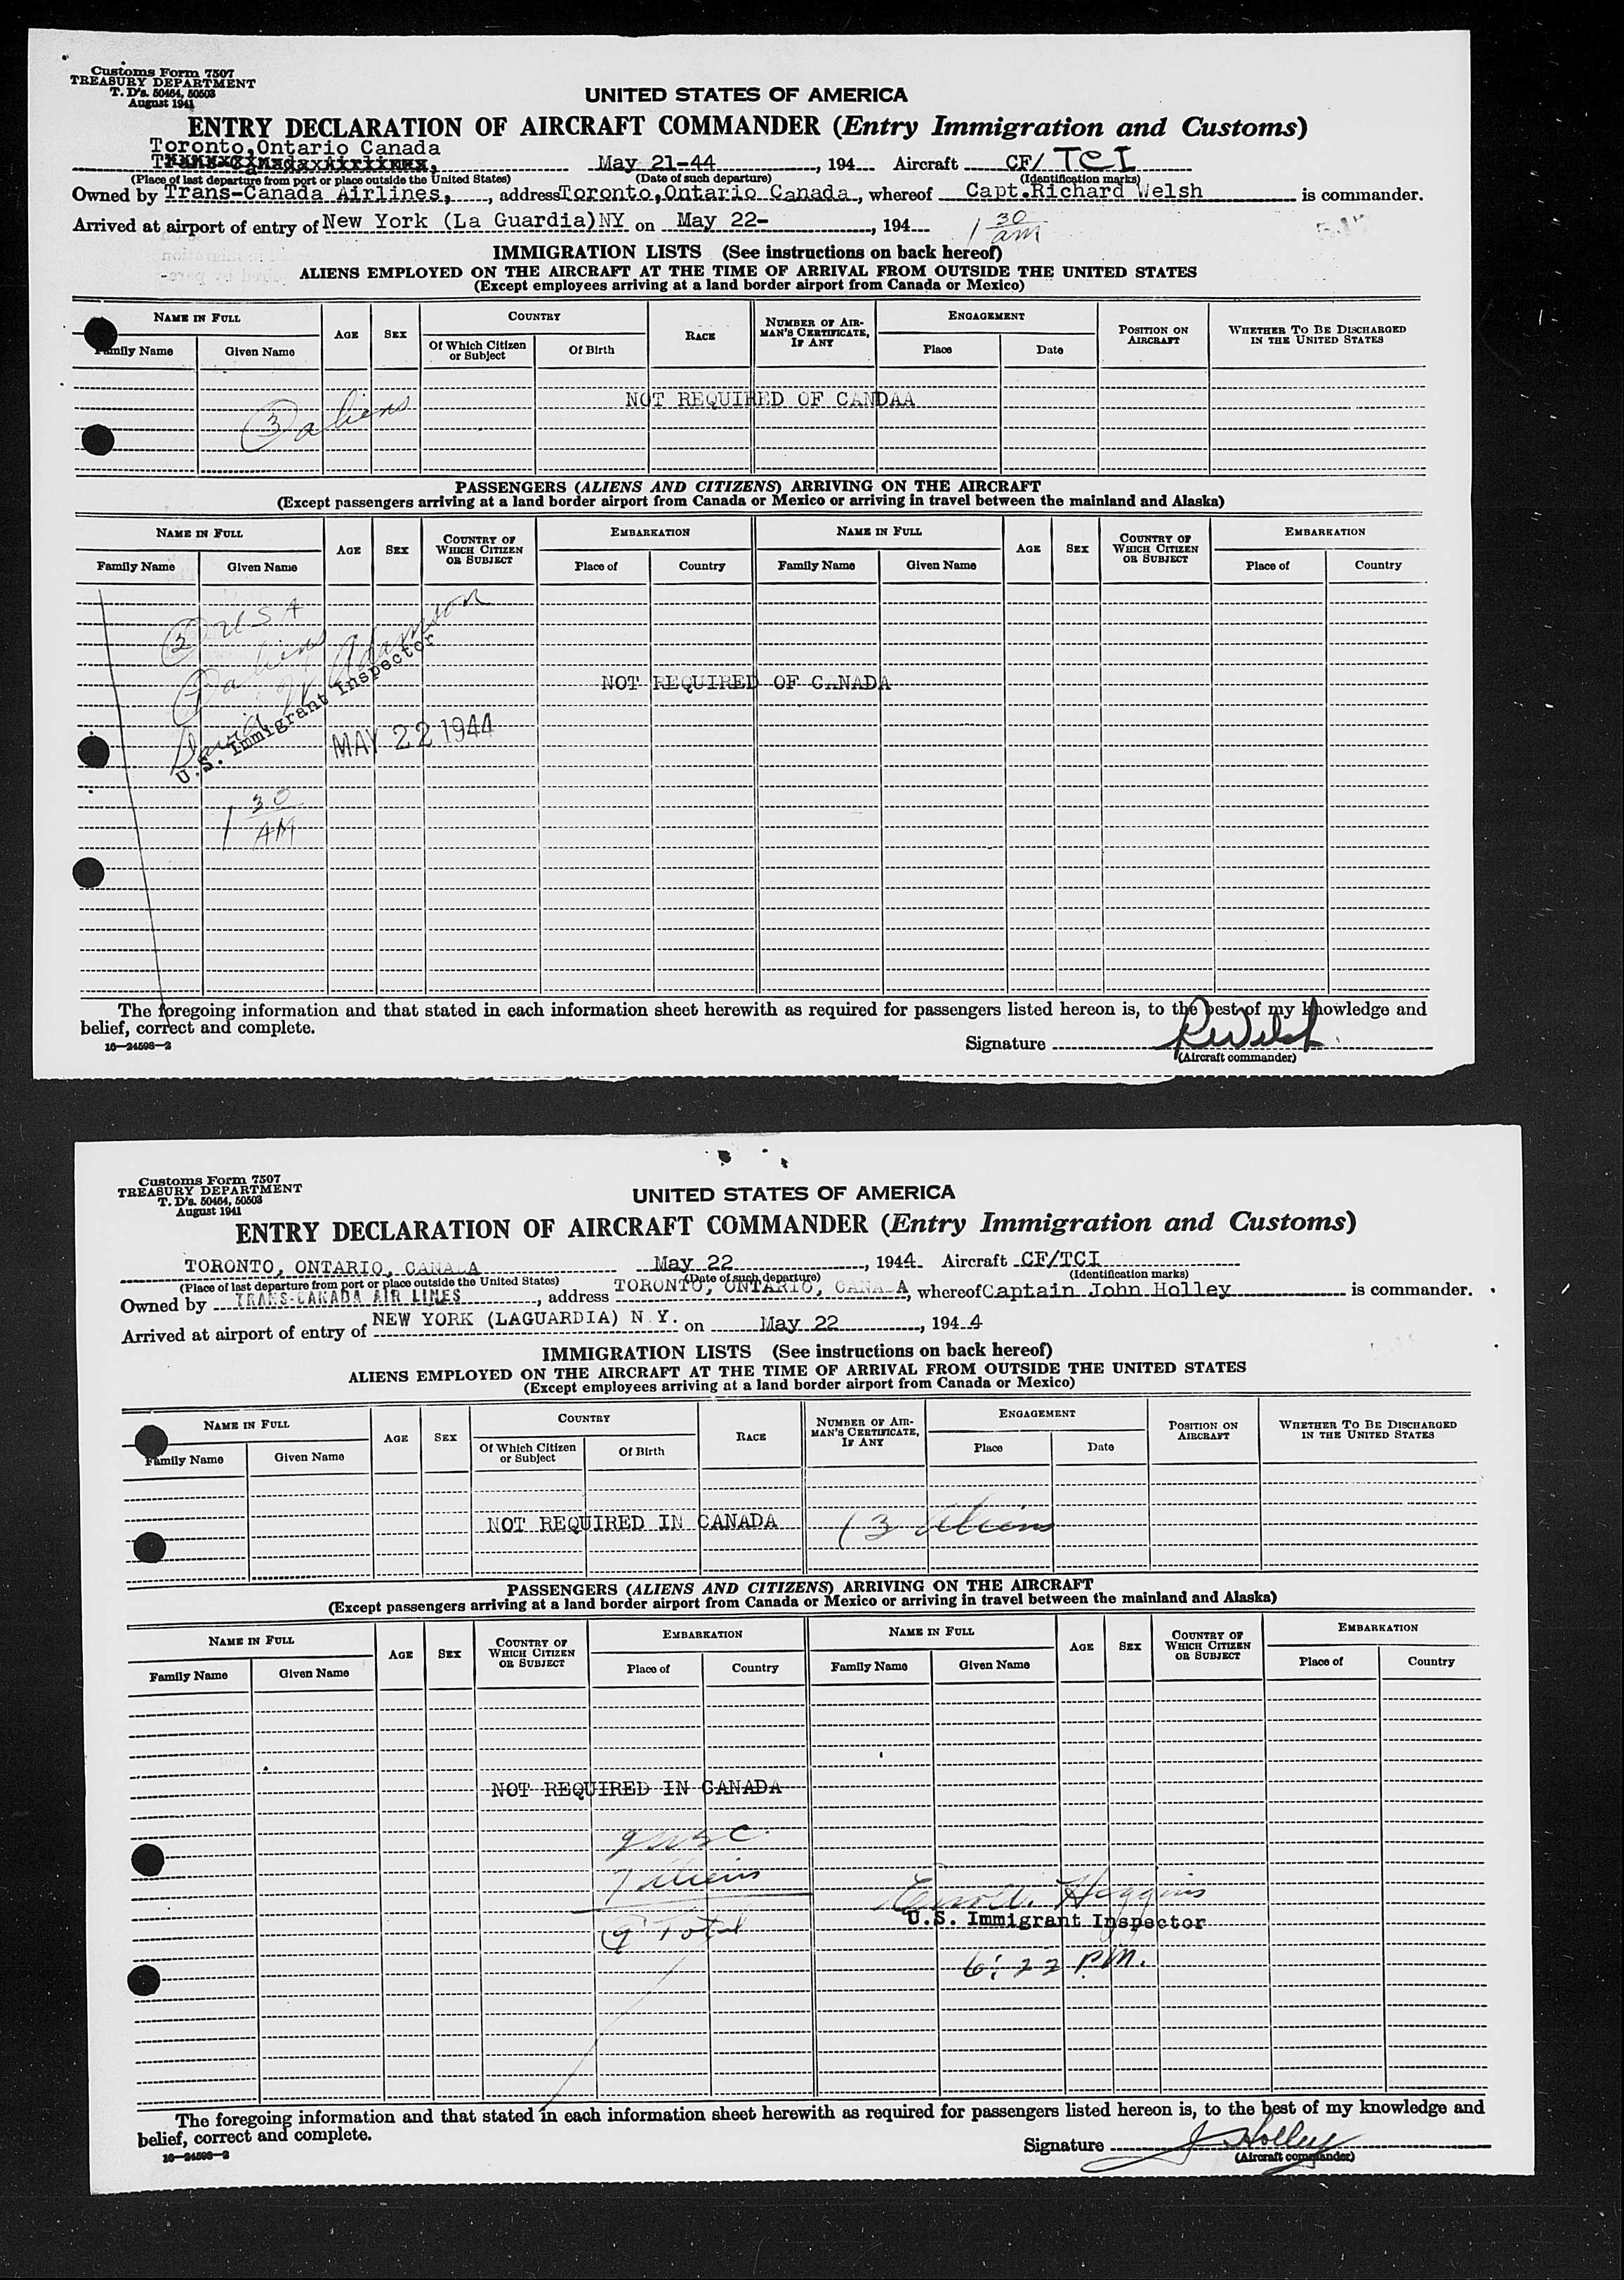 Customs Form 7507
TREASURY DEPARTMENT
T. D's. 50464, 50503
August 1941
UNITED STATES OF AMERICA
ENTRY DECLARATION OF AIRCRAFT COMMANDER (Entry Immigration and Customs)
Toronto,Ontario Canada
May 21-44, 194 Aircraft CF/ TCI
(Place of last departure from port or place outside the United States) (Date of such departure) (Identification marks)
Owned by Trans-Canada Airlines, , address Toronto,Ontario Canada , whereof Capt.Richard Welsh is commander.
Arrived at airport of entry of New York (La Guardia)NY on May 22- , 194 1 30 am
IMMIGRATION LISTS (See instructions on back hereof)
ALIENS EMPLOYED ON THE AIRCRAFT AT THE TIME OF ARRIVAL FROM OUTSIDE THE UNITED STATES
(Except employees arriving at a land border airport from Canada or Mexico)
NAME IN FULL AGE SEX COUNTRY RACE NUMBER OF AIRMAN'S CERTIFICATE, IF ANY ENGAGEMENT POSITION ON AIRCRAFT WHETHER TO BE DISCHARGED IN THE UNITED STATES
Family Name Given Name Of Which Citizen or Subject Of Birth Place Date
NOT REQUIRED OF CANDAA
3 aliens
PASSENGERS (ALIENS AND CITIZENS) ARRIVING ON THE AIRCRAFT
(Except passengers arriving at a land border airport from Canada or Mexico or arriving in travel between the mainland and Alaska)
NAME IN FULL AGE SEX COUNTRY OF WHICH CITIZEN OR SUBJECT EMBARKATION NAME IN FULL AGE SEX COUNTRY OF WHICH CITIZEN OR SUBJECT EMBARKATION
Family Name Given Name Place of Country Family Name Given Name Place of Country
USA
aliens
David Adamson
U.S. Immigrant Inspector
NOT REQUIRED OF CANADA
MAY 22 1944
1 30 AM
The foregoing information and that stated in each information sheet herewith as required for passengers listed hereon is, to the best of my knowledge and
belief, correct and complete.
16—24598-2
Signature R Welsh
(Aircraft commander)
Customs Form 7507
TREASURY DEPARTMENT
T. D's. 50464, 50503
August 1941
UNITED STATES OF AMERICA
ENTRY DECLARATION OF AIRCRAFT COMMANDER (Entry Immigration and Customs)
TORONTO, ONTARIO, CANADA May 22 , 1944 Aircraft CF/TCI
(Place of last departure from port or place outside the United States) (Date of such departure) (Identification marks)
Owned by TRANS-CANADA AIR LINES , address TORONTO, ONTARIO, CANADA , whereof Captain John Holley is commander.
Arrived at airport of entry of NEW YORK (LAGUARDIA) N Y. on May 22 , 194 4
IMMIGRATION LISTS (See instructions on back hereof)
ALIENS EMPLOYED ON THE AIRCRAFT AT THE TIME OF ARRIVAL FROM OUTSIDE THE UNITED STATES
(Except employees arriving at a land border airport from Canada or Mexico)
NAME IN FULL AGE SEX COUNTRY RACE NUMBER OF AIRMAN'S CERTIFICATE, IF ANY ENGAGEMENT POSITION ON AIRCRAFT WHETHER TO BE DISCHARGED IN THE UNITED STATES
Family Name Given Name Of Which Citizen or Subject Of Birth Place Date
NOT REQUIRED IN CANADA 3 aliens
PASSENGERS (ALIENS AND CITIZENS) ARRIVING ON THE AIRCRAFT
(Except passengers arriving at a land border airport from Canada or Mexico or arriving in travel between the mainland and Alaska)
NAME IN FULL AGE SEX COUNTRY OF WHICH CITIZEN OR SUBJECT EMBARKATION NAME IN FULL AGE SEX COUNTRY OF WHICH CITIZEN OR SUBJECT EMBARKATION
Family Name Given Name Place of Country Family Name Given Name Place of Country
NOT REQUIRED IN CANADA
aliens
Higgins
Total
U.S. Immigrant Inspector
6:22 P.M.
The foregoing information and that stated in each information sheet herewith as required for passengers listed hereon is, to the best of my knowledge and
belief, correct and complete.
16—24598-2
Signature J Holley
(Aircraft commander)